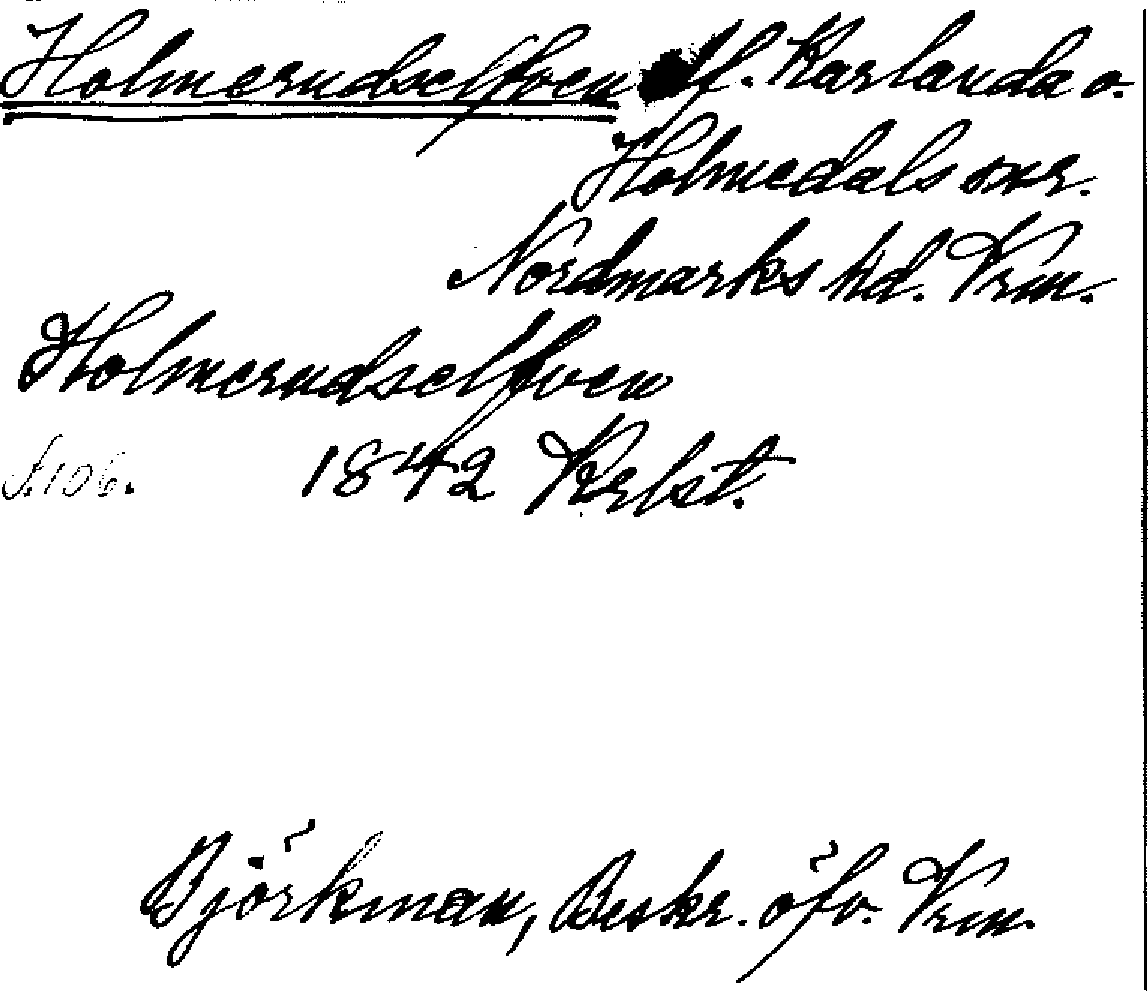 Holmerudselfven elf. Karlanda o.
Holmedals snr.
Nordmarks hd. Vrm.
Holmerudselfven
S. 106. 1842 Krlst.
Björkman, Beskr. öfv. Vrm.